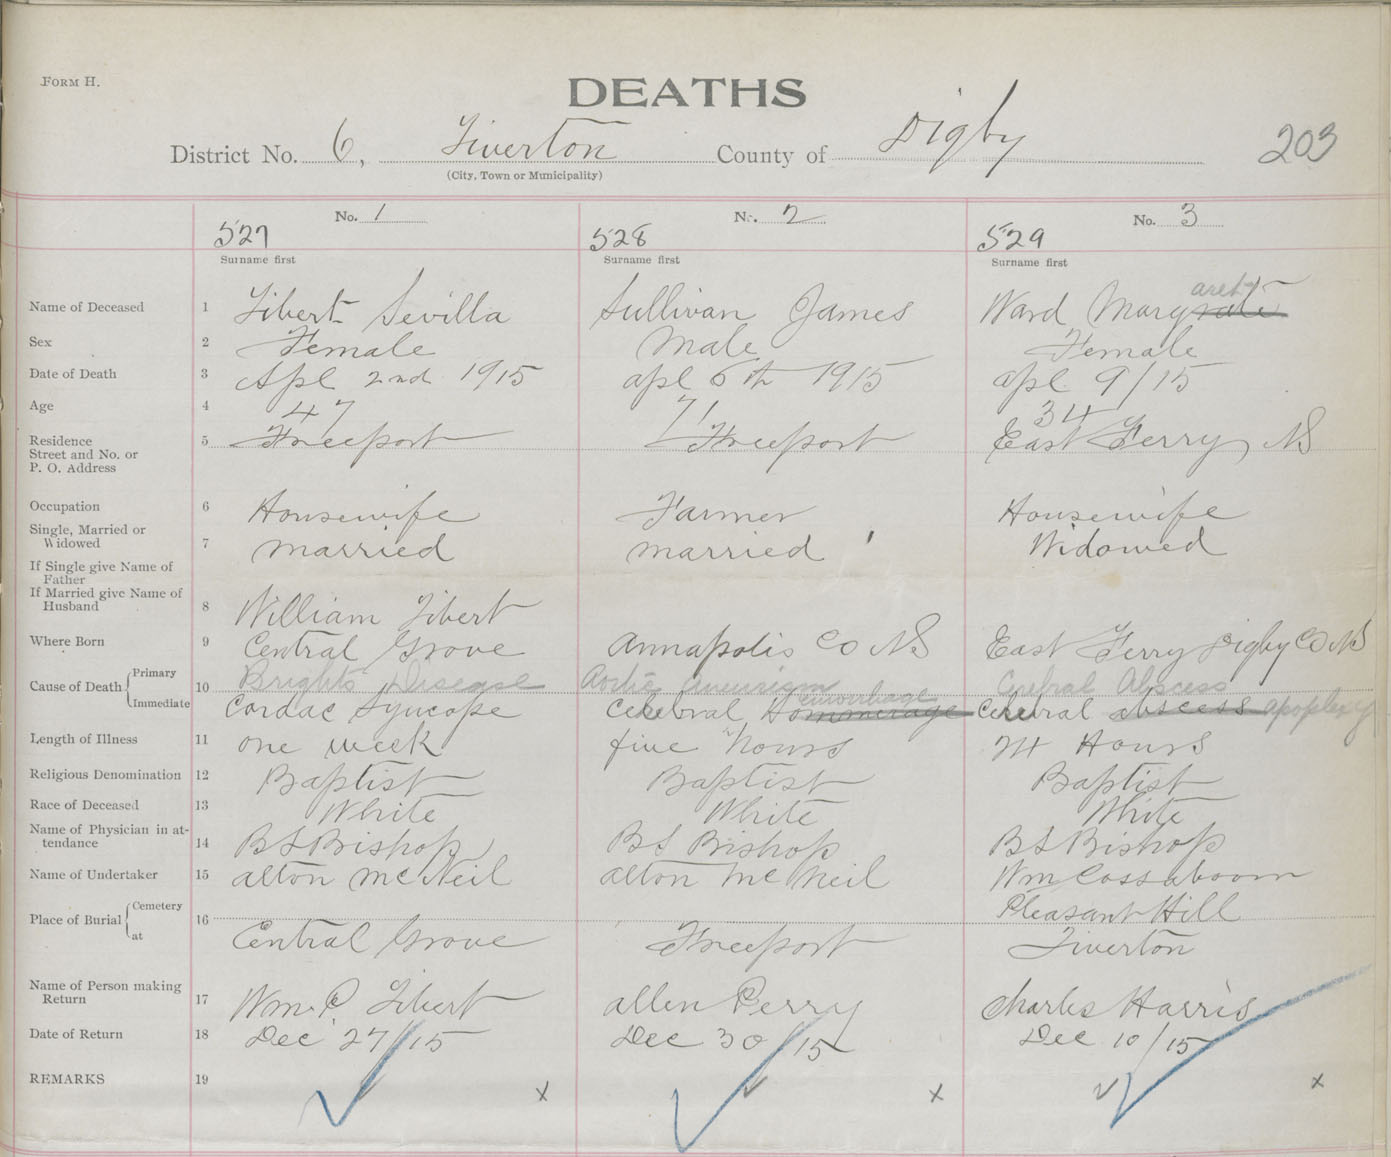 FORM H.
DEATHS
District No. 6, Tiverton County of Digby 203
(City, Town or Municipality)
No. 1 No. 2 No. 3
527 528 529
Surname first Surname first Surname first
Name of Deceased 1 Tibert Sevilla Sullivan James Ward Margarett
Sex 2 Female Male Female
Date of Death 3 Apl 2nd 1915 apl 6th 1915 apl 9/15
Age 4 47 71 34
Residence 5 Freeport Freeport East Ferry, NS
Street and No. or
P. O. Address
Occupation 6 Housewife Farmer Housewife
Single, Married or
Widowed 7 married married Widowed
If Single give Name of
Father
If Married give Name of
Husband 8 William Tibert
Where Born 9 Central Grove Annapolis Co NS East Ferry Digby Co NS
Cause of Death Primary 10 Brights Disease Aortic Aneurism Cerebral Abscess
Immediate Cordac Syncope Cerebral Hommerage emorrhage Cerebral abscess apoplexy
Length of Illness 11 one week five hours 24 Hours
Religious Denomination 12 Baptist Baptist Baptist
Race of Deceased 13 White White White
Name of Physician in at-
tendance 14 BS Bishop BS Bishop BS Bishop
Name of Undertaker 15 alton McNeil alton McNeil Wm Cossaboom
Place of Burial Cemetery 16 Pleasant Hill
at Central Grove Freeport Tiverton
Name of Person making
Return 17 Wm. C Tibert allen Perry Charles Harris
Date of Return 18 Dec 27/15 Dec 30/15 Dec 10/15
REMARKS 19 x x x